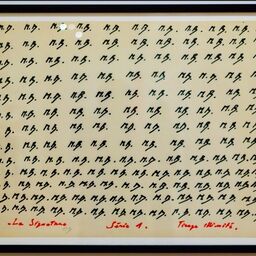 M.B. M.B. M.B. M.B. M.B. M.B. M.B. M.B. M.B. M.B.
B. M.B. M.B. M.B. M.B. M.B. M.B. M.B. M.B. M.B.
B. M.B. M.B. M.B. M.B. M.B. M.B. M.B. M.B. M.B.
B. M.B. M.B. M.B. M.B. M.B. M.B. M.B. M.B. M.B.
B. M.B. M.B. M.B. M.B. M.B. M.B. M.B. M.B. M.B.
B. M.B. M.B. M.B. M.B. M.B. M.B. M.B. M.B. M.B.
B. M.B. M.B. M.B. M.B. M.B. M.B. M.B. M.B. M.B.
B. M.B. M.B. M.B. M.B. M.B. M.B. M.B. M.B. M.B.
B. M.B. M.B. M.B. M.B. M.B. M.B. M.B. M.B. M.B.
B. M.B. M.B. M.B. M.B. M.B. M.B. M.B. M.B. M.B. M.B.
B. M.B. M.B. M.B. M.B. M.B. M.B. M.B. M.B. M.B. M.B.
B. M.B. M.B. M.B. M.B. M.B. M.B. M.B. M.B. M.B. M.B.
B. M.B. M.B. M.B. M.B. M.B. M.B. M.B. M.B. M.B. M.B.
La Signature Série 1. Tirage illimité.